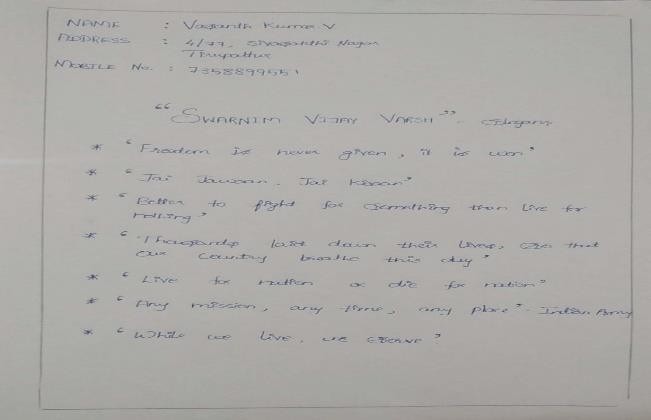 NAME : Vasanth Kumar V
ADDRESS : 4/77, Sivasakthi Nagar
Tirupattur
MOBILE No. : 7358899551
"SWARNIM VIJAY VARSH" - Slogans
* "Freedom is never given, it is won"
* "Jai Jawaan, Jai Kisaan"
* "Better to fight for something than live for
nothing"
* "Thousands laid down their lives, so that
our country breathe this day"
* "Live for nation or die for nation"
* "Any mission, any time, any place" - Indian Army
* "While we live, we serve"